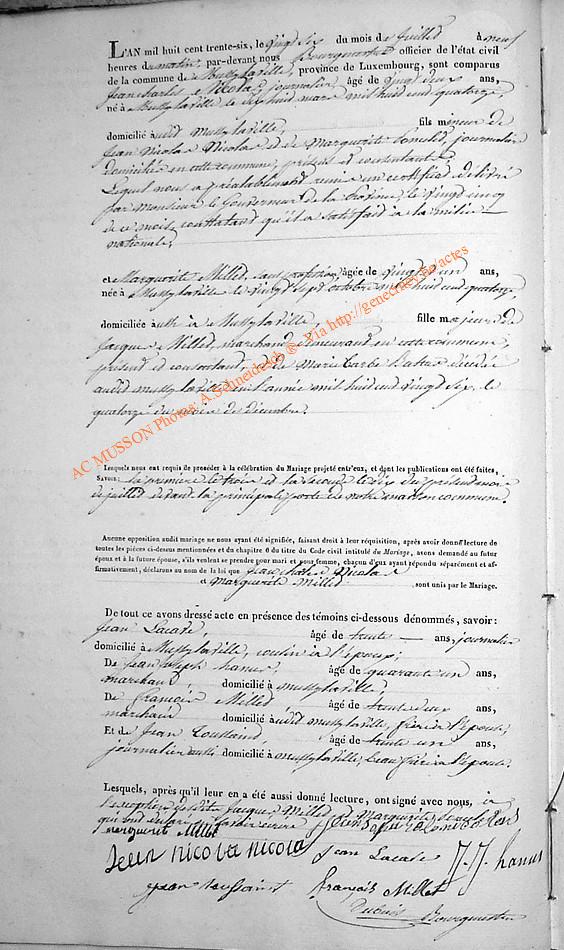 L'AN mil huit cent trente-six, le vingt six du mois de juillet à neuf
heures du matin, par-devant nous Bourgmestre officier de l'état civil
de la commune de Mussylaville, province de Luxembourg, sont comparus
Jean Charles Nicolas journalier, âgé de vingt deux ans,
né à Mussylaville le dix huit mars mil huit cent quatorze,
domicilié audit Mussylaville, fils mineur de
Jean Nicolas Nicolas et de Marguerite journaliers
domiciliés en cette commune, présents et consentants
Lequel nous a préalablement remis un certificat délivré
par Monsieur le Gouverneur de la Province, le vingt cinq
de ce mois, constatant qu'il a satisfait à la milice
nationale,
et Marguerite Millet, sans profession, âgée de vingt et un ans,
née à Mussylaville le vingt sept octobre mil huit cent quatorze,
domiciliée aussi à Mussylaville, fille majeure de
Jacques Millet, marchand demeurant en cette commune,
présent et consentant, et de Marie Barbe décédée
audit Mussylaville en l'année mil huit cent vingt six, le
quatorze du mois de décembre.
AC MUSSON Photos: A.Schneidesch ® - Via http://geneciney.be/actes
Lesquels nous ont requis de procéder à la célébration du Mariage projeté entr'eux, et dont les publications ont été faites,
SAVOIR: la première le trois et la seconde le dix du présent mois
de juillet devant la principale porte de notre maison commune.
Aucune opposition audit mariage ne nous ayant été signifiée, faisant droit à leur réquisition, après avoir donné lecture de
toutes les pièces ci-dessus mentionnées et du chapitre 6 du titre du Code civil intitulé du Mariage, avons demandé au futur
époux et à la future épouse, s'ils veulent se prendre pour mari et pour femme, chacun d'eux ayant répondu séparément et af-
firmativement, déclarons au nom de la loi que Jean Charles Nicolas
et Marguerite Millet sont unis par le Mariage.
De tout ce avons dressé acte en présence des témoins ci-dessous dénommés, savoir:
Jean Lacave, âgé de trente ans, journalier
domicilié à Mussylaville, cousin à l'époux;
De Jean Joseph hanus, âgé de quarante un ans,
marchand, domicilié à Mussylaville,
De François Millet âgé de trente deux ans,
marchand domicilié audit Mussylaville, frère à l'épouse,
Et de Jean Toussaint âgé de trente un ans,
journalier aussi domicilié à Mussylaville, beau frère à l'épouse.
Lesquels, après qu'il leur en a été aussi donné lecture, ont signé avec nous, à
l'exception desdits Jacques Millet et Marguerite
qui ont déclaré ne savoir écrire
marguerit Millet
Jean nicola nicola Jean Lacave J. J. hanus
jean toussaint françois Millet
Bourgmestre